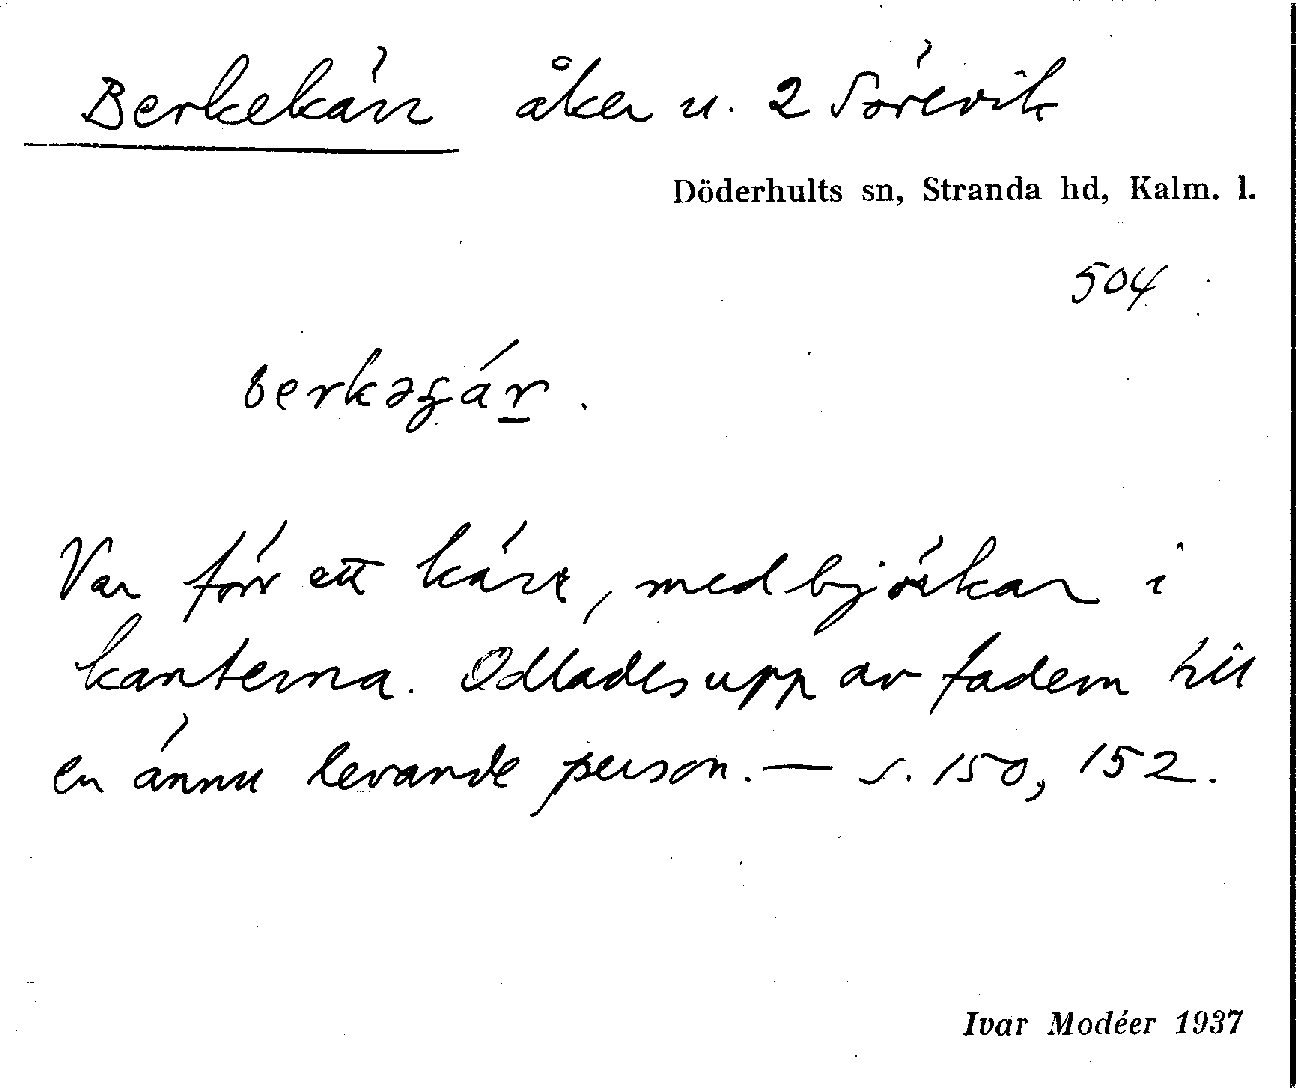 Berkekärr åker u. 2 Sörevik
Döderhults sn, Stranda hd, Kalm. l.
504
berkəʒár.
Var förr ett kärr, med björkar i
kanterna. Odlades upp av fadern till
en ännu levande person. — s. 150, 152.
Ivar Modéer 1937